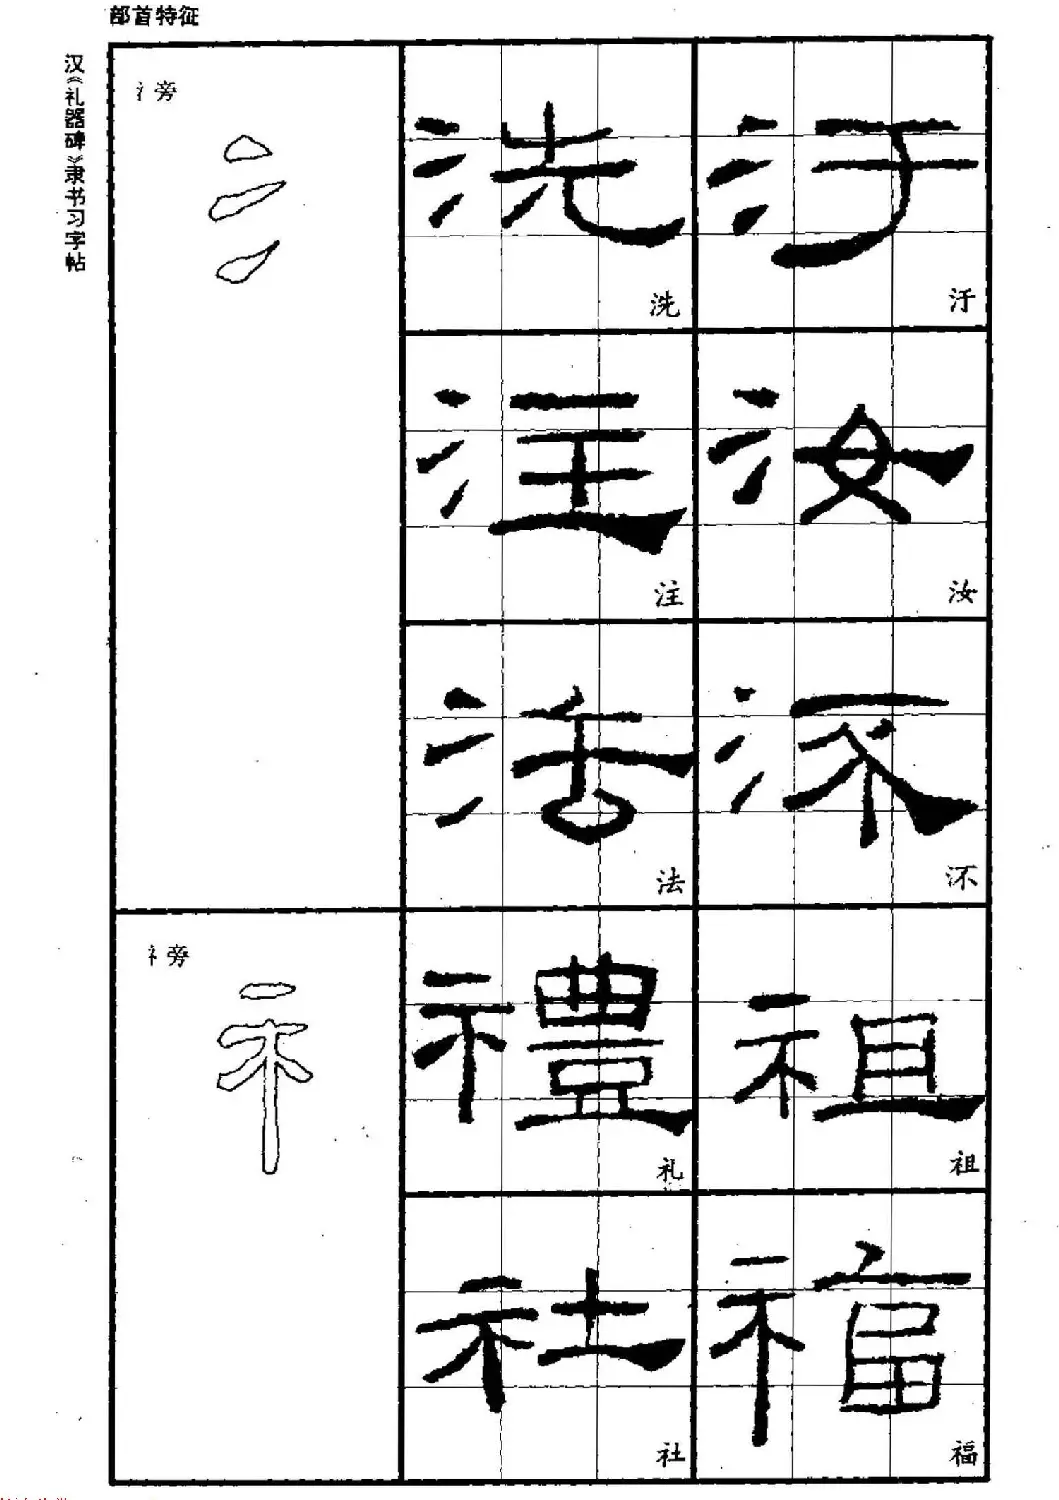 部首特征
汉《礼器碑》隶书习字帖
氵旁
洗 汙
洗 汙
注 汝
注 汝
活 沶
法 沶
礻旁
禮 祖
礼 祖
社 福
社 福